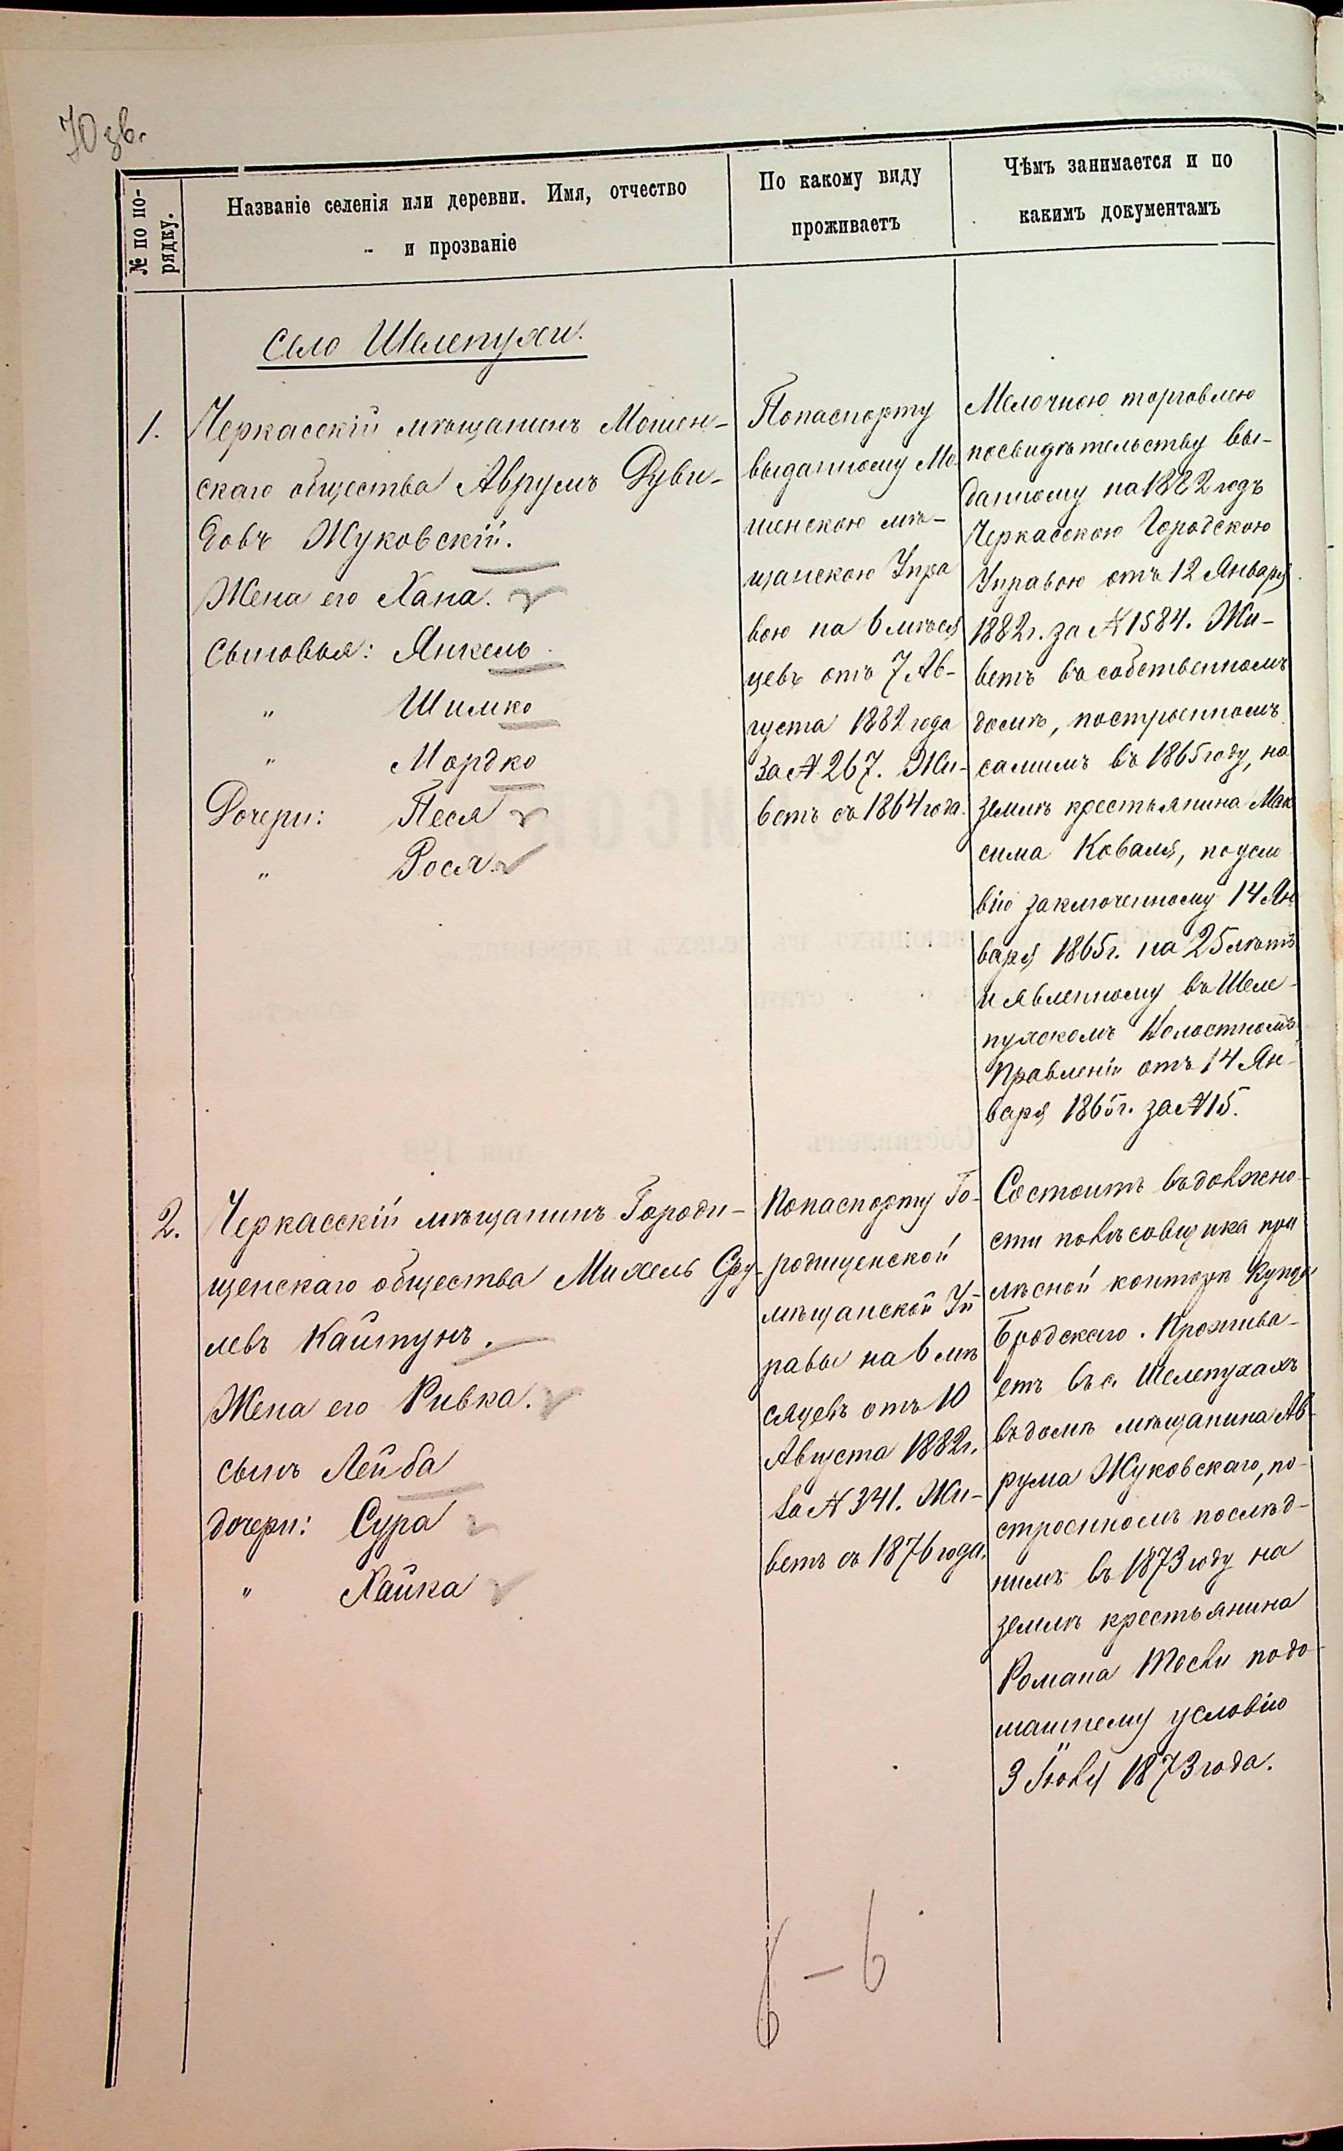 70 зв.
№ по по-
рядку.
Названіе селенія или деревни. Имя, отчество
и прозваніе
По какому виду
проживаетъ
Чѣмъ занимается и по
какимъ документамъ
Село Шелепухи.
1.
Черкасскій мѣщанинъ Мошен-
скаго общества Аврумъ Дуви-
довъ Жуковскій.
Жена его Хана.
Сыновья: Янкель
„ Шимко
„ Мордко
Дочери: Песя
„ Рося
Попаспорту
выданному Мо
шенскою мѣ-
щанскою Упра
вою на 6 мѣся
цевъ отъ 7 Ав-
густа 1882 года
за № 267. Жи-
ветъ съ 1864 года.
Мелочною торговлею
посвидѣтельству вы-
данному на 1882 годъ
Черкасскою Городскою
Управою отъ 12 Января
1882 г. за № 1584. Жи-
ветъ въ собственномъ
домѣ, построенномъ
самимъ въ 1865 году, на
землѣ крестьянина Мак
сима Коваля, поусло
вію заключенному 14 Ян
варя 1865 г. на 25 лѣтъ
и явленному въ Шеле-
пухскомъ Волостномъ
Правленіи отъ 14 Ян-
варя 1865 г. за № 15.
2.
Черкасскій мѣщанинъ Городи-
щенскаго общества Михель Сру-
левъ Кайтунъ.
Жена его Ривка.
сынъ Лейба
дочери: Сура
„ Хайка
Попаспорту Го-
родищенской
мѣщанской Уп
равы на 6 мѣ
сяцевъ отъ 10
Августа 1882 г.
за № 341. Жи-
ветъ съ 1876 года.
Состоитъ въдолжно-
сти полѣсовщика при
лѣсной конторѣ Купца
Бродскаго. Прожива-
етъ въ с. Шелепухахъ
въдомѣ мѣщанина Ав-
рума Жуковскаго, по-
строенномъ послѣд-
нимъ въ 1873 году на
землѣ крестьянина
Романа подо-
машнему условію
3 Іюля 1873 года.
8 – 6